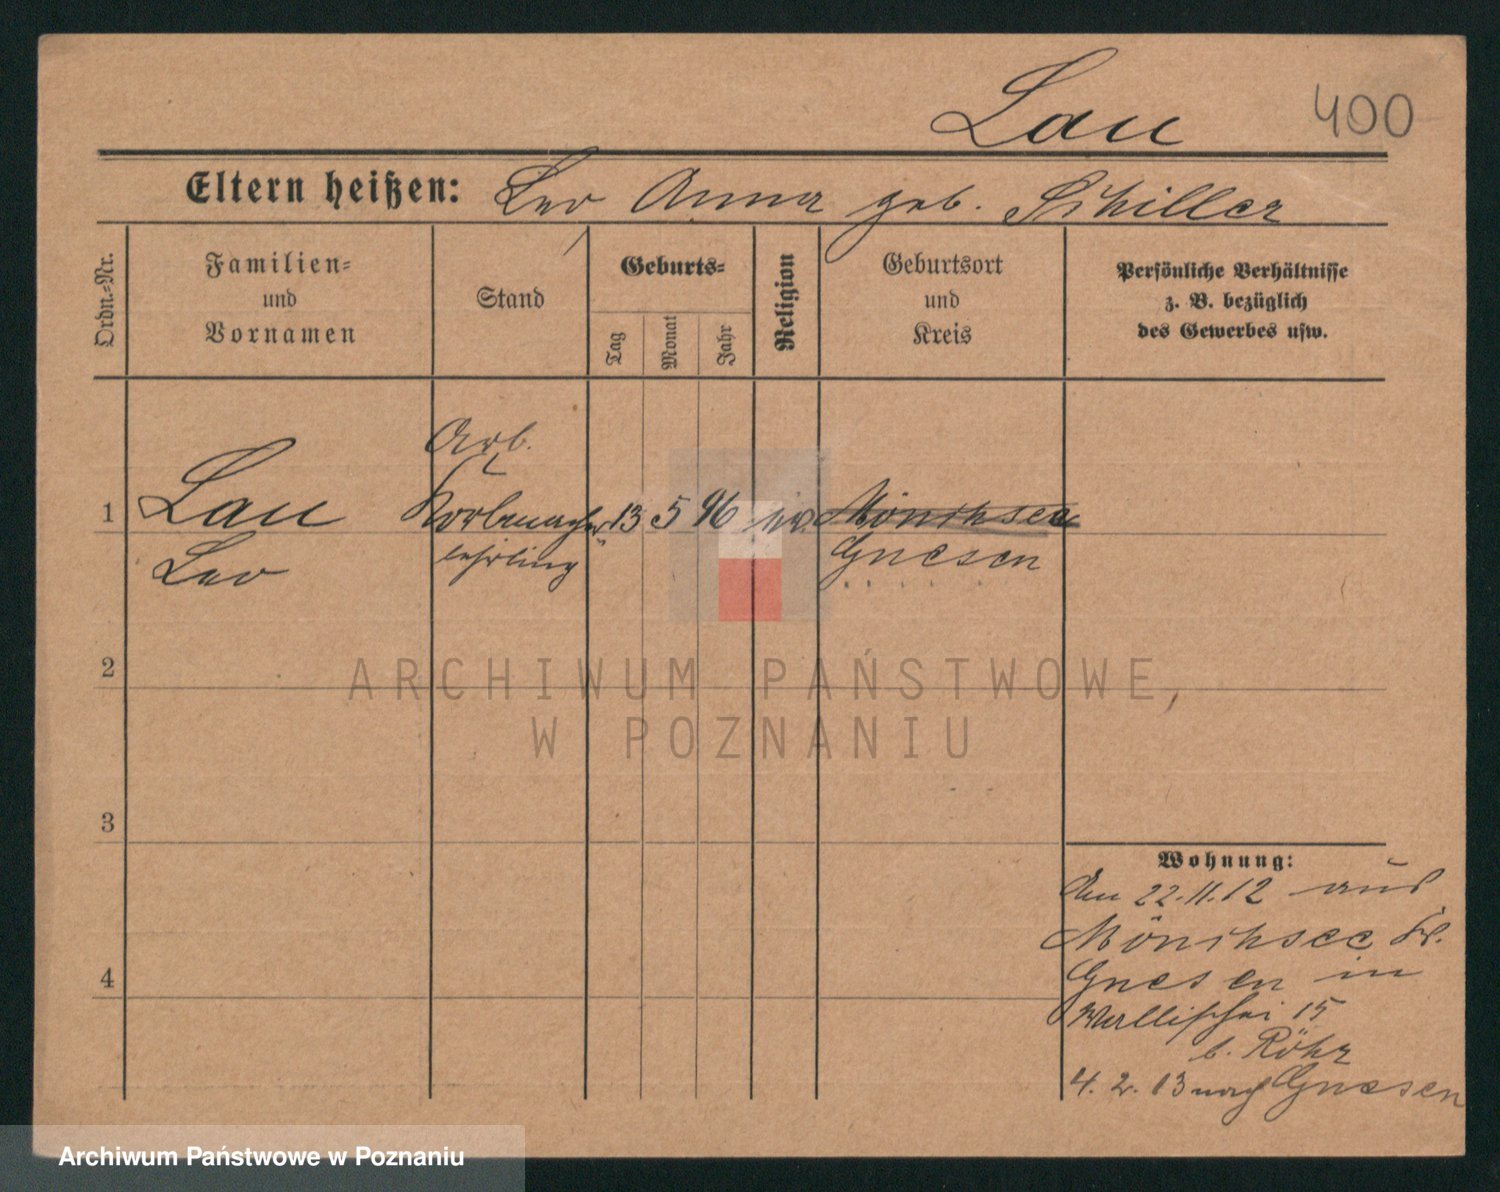 Lau 400
Eltern heißen: Leo Anna geb. Schiller
Ordn.=Nr.
Familien=
und
Vornamen
Stand
Geburts=
Tag
Monat
Jahr
Religion
Geburtsort
und
Kreis
Persönliche Verhältnisse
z. B. bezüglich
des Gewerbes usw.
1
Lau
Leo
Arb.
Korbmacher
lehrling
13 5 96
Mönchsee
Gnesen
2
3
4
ARCHIWUM PAŃSTWOWE
W POZNANIU
Wohnung:
22.11.12 aus
Mönchsee Kr.
Gnesen in
Wallischei 15
b. Röhr
4. 2. 13 nach Gnesen
Archiwum Państwowe w Poznaniu